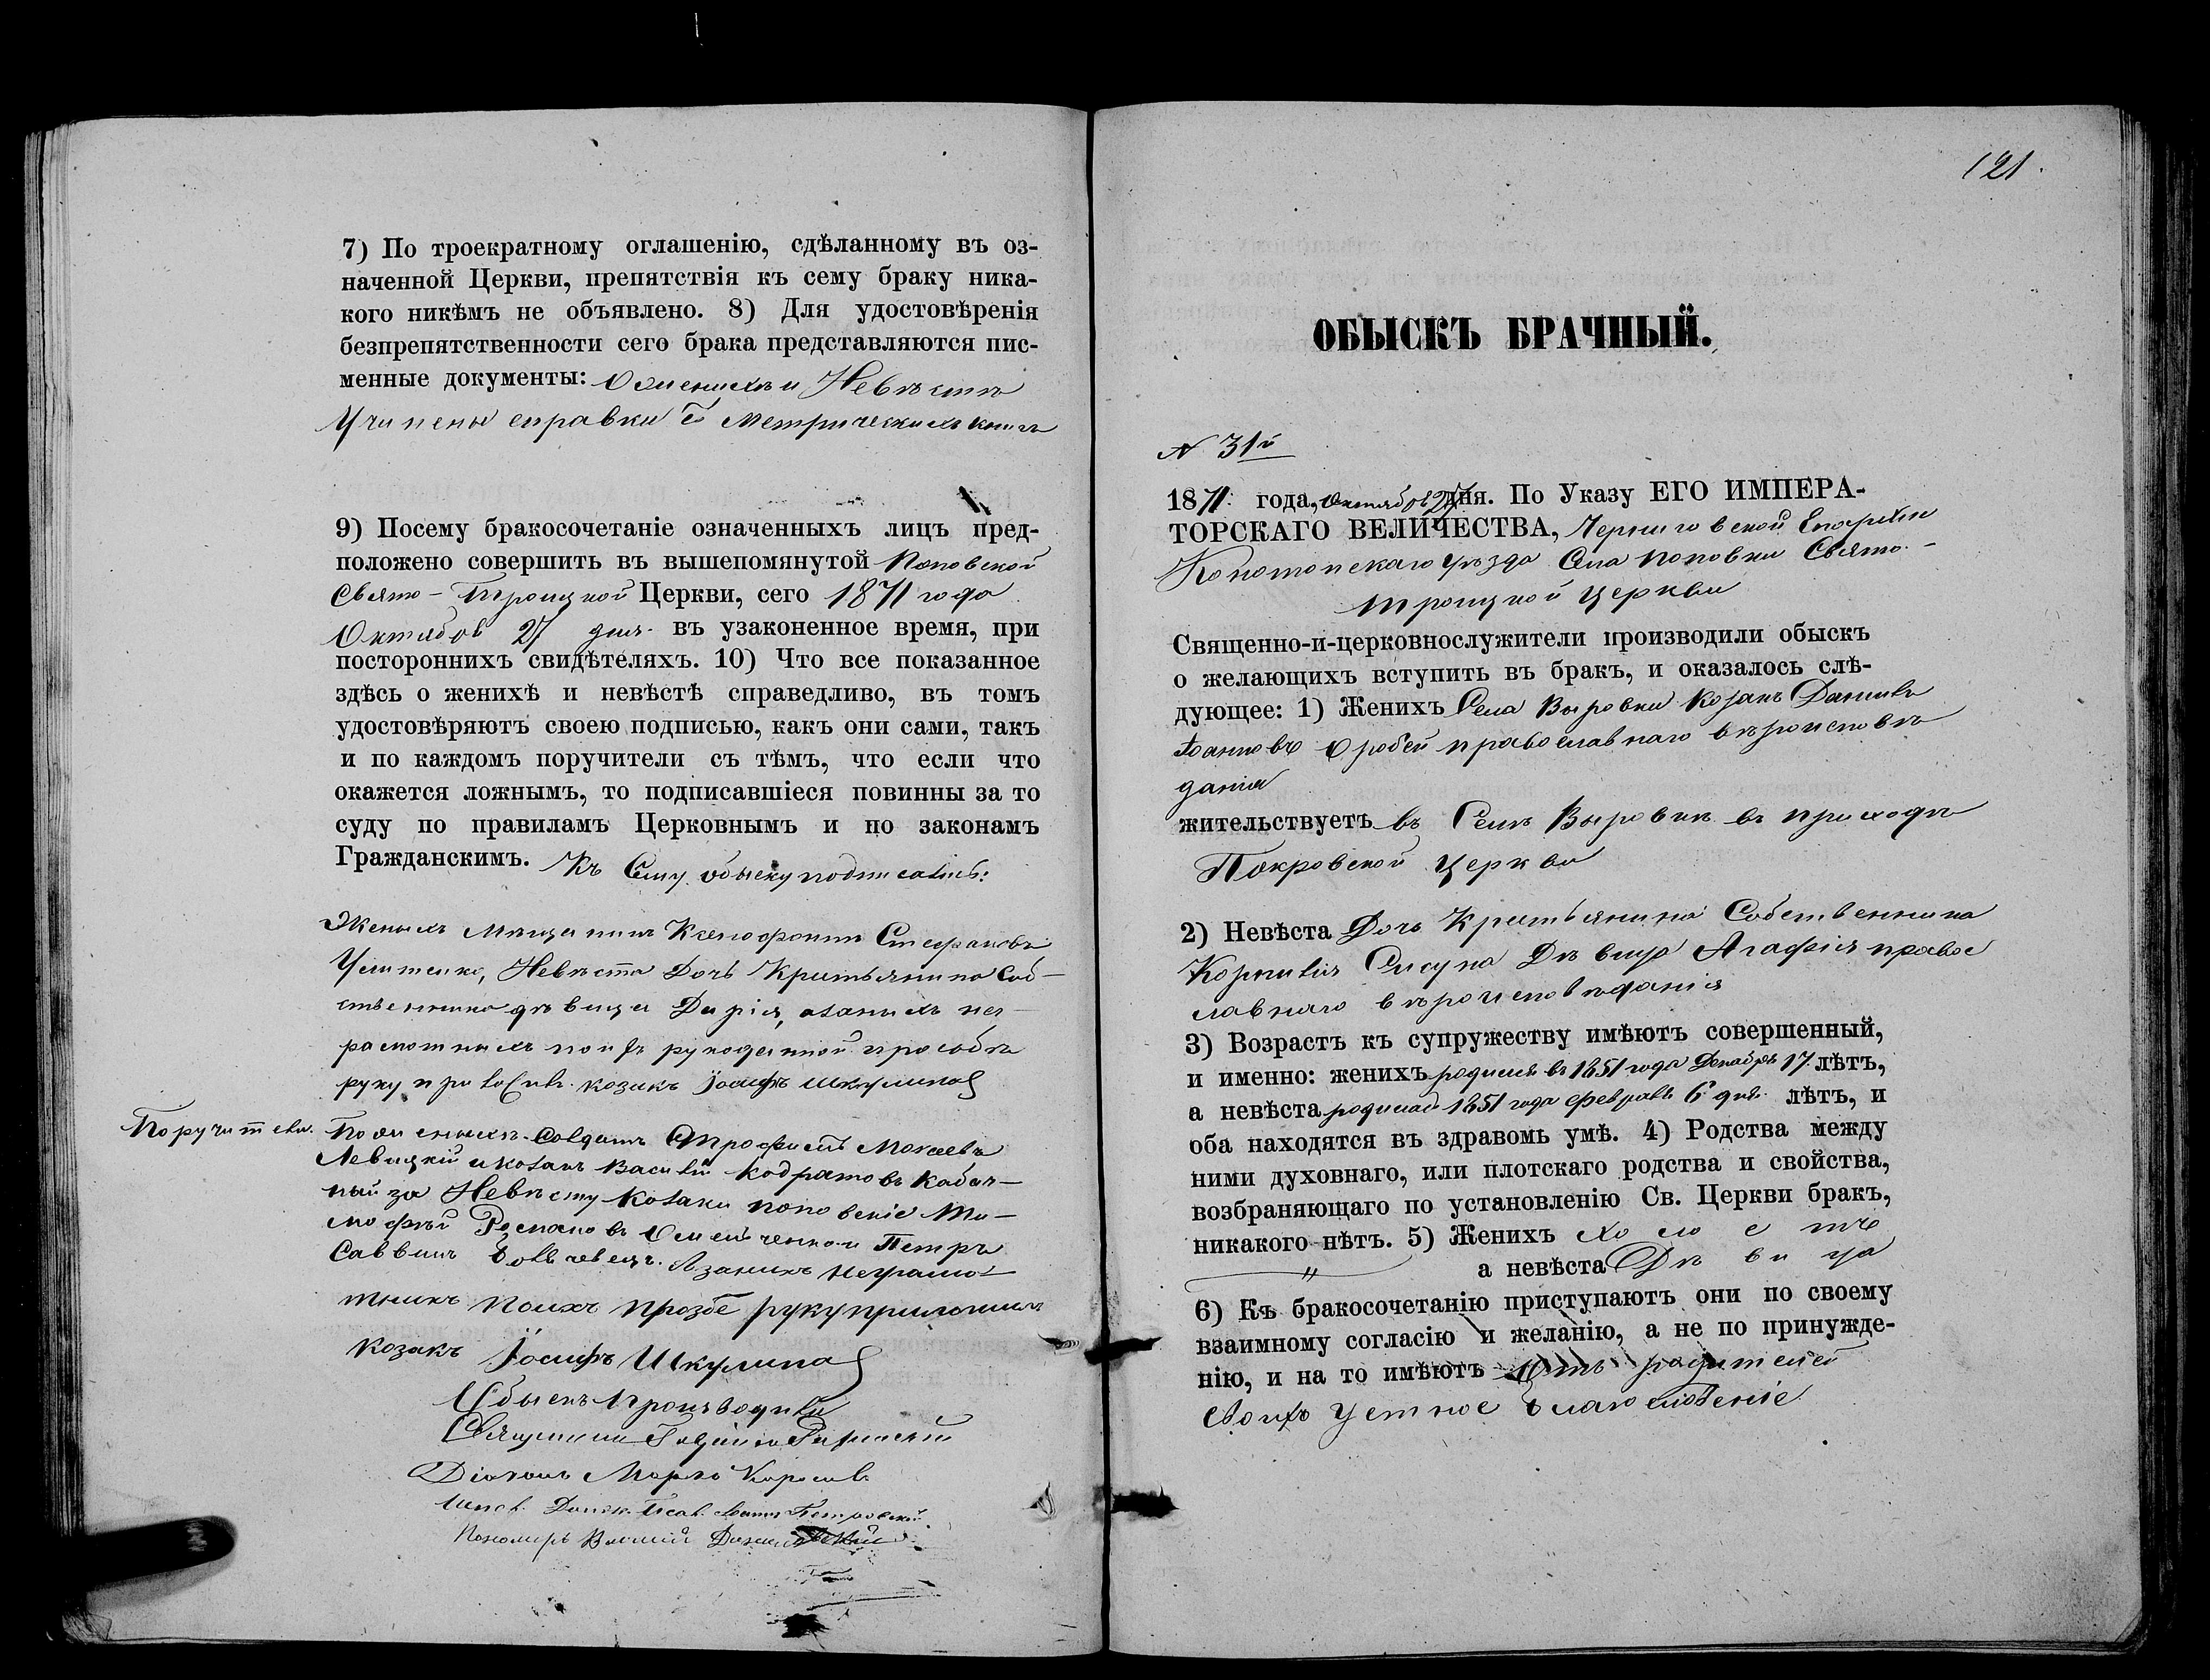 7) По троекратному оглашенію, сдѣланному въ оз-
наченной Церкви, препятствія къ сему браку ника-
кого никѣмъ не объявлено. 8) Для удостовѣренія
безпрепятственности сего брака представляются пис-
менные документы: О женихѣ и Невѣстѣ
Учинены справки съ Метрическихъ книгъ
9) Посему бракосочетаніе означенныхъ лицъ пред-
положено совершить въ вышепомянутой Поповской
Свято-Троицкой Церкви, сего 1871 года
Октября 27 дня въ узаконенное время, при
постороннихъ свидѣтеляхъ. 10) Что все показанное
здѣсь о женихѣ и невѣстѣ справедливо, въ томъ
удостовѣряютъ своею подписью, какъ они сами, такъ
и по каждомъ поручители съ тѣмъ, что если что
окажется ложнымъ, то подписавшіеся повинны за то
суду по правиламъ Церковнымъ и по законамъ
Гражданскимъ. Къ Сему обыску подписались:
Женихъ Мѣщанинъ Ксенофонтъ Стефановъ
Невѣста Дочь Крестьянина Соб-
ственника дѣвица Дарія, а за нихъ нег-
рамотныхъ по ихъ рукоданной прозбѣ
руку приложилъ козакъ Іосифъ Шкулипа
Поручители. По женихѣ Солдатъ Мокіевъ
Левицкій и козакъ Василій Кодратовъ
за Невѣсту козаки поповскіе Ти-
мофѣй Романовъ Омельченко и Петръ
Саввинъ А за нихъ неграмо-
тнихъ по ихъ прозбе руку приложилъ
козакъ Іосифъ Шкулипа
Обыскъ производили
Священникъ
Діаконъ Марко
Іоаннъ Петровскій
Пономарь Василій
121.
ОБЫСКЪ БРАЧНЫЙ.
N 31й
1871 года, Октября 27 дня. По Указу ЕГО ИМПЕРА-
ТОРСКАГО ВЕЛИЧЕСТВА, Черниговской Епархіи
Конотопскаго Уѣзда Села Поповки Свято-
Троицкой Церкви
Священно-и-церковнослужители производили обыскъ
о желающихъ вступить въ бракъ, и оказалось слѣ-
дующее: 1) Женихъ Села Выровки Козакъ Даниилъ
Іоанновъ Оробей православнаго вѣроисповѣ
данія
жительствуетъ въ Селѣ Выровкѣ въ приходѣ
Покровской Церкви
2) Невѣста Дочь Крестьянина Собственника
Корнилія Сисуна Дѣвица Агафія правос
лавнаго вѣроисповѣданія
3) Возрастъ къ супружеству имѣютъ совершенный,
и именно: женихъ родился въ 1851 года Декабря 17 лѣтъ,
а невѣста родилась 1851 года февраля 6 дня лѣтъ, и
оба находятся въ здравомъ умѣ. 4) Родства между
ними духовнаго, или плотскаго родства и свойства,
возбраняющаго по установленію Св. Церкви бракъ,
никакого нѣтъ. 5) Женихъ холостъ
" а невѣста Дѣвица
6) Къ бракосочетанію приступаютъ они по своему
взаимному согласію и желанію, а не по принужде-
нію, и на то имѣютъ Отъ родителей
своихъ устное благословеніе